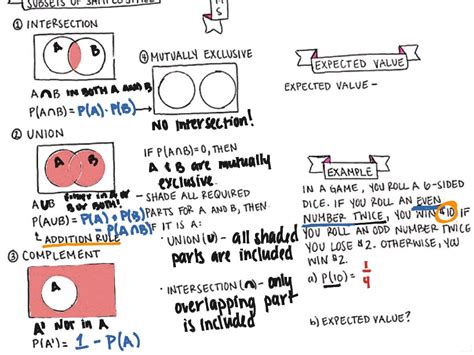 SUBSETS OF SAMPLE SPACE
① INTERSECTION
A B
A∩B IN BOTH A AND B
P(A∩B) = P(A) · P(B)
② UNION
A B
A∪B EITHER IN A OR
B OR BOTH!
P(A∪B) = P(A) + P(B)
- P(A∩B)
ADDITION RULE
③ COMPLEMENT
A
A' Not in A
P(A') = 1 - P(A)
④ MUTUALLY EXCLUSIVE
NO Intersection!
IF P(A∩B) = 0, THEN
A & B are mutually
exclusive.
- SHADE ALL REQUIRED
PARTS FOR A AND B, THEN
IF IT IS A:
· UNION (∪) - all shaded
parts are included
· INTERSECTION (∩) - only
overlapping part
is included
S
EXPECTED VALUE
EXPECTED VALUE -
EXAMPLE
IN A GAME, YOU ROLL A 6-SIDED
DICE. IF YOU ROLL AN EVEN
NUMBER TWICE, YOU WIN $10. IF
YOU ROLL AN ODD NUMBER TWICE
YOU LOSE $2. OTHERWISE, YOU
WIN $2.
a) P(10) = 1/4
b) EXPECTED VALUE?